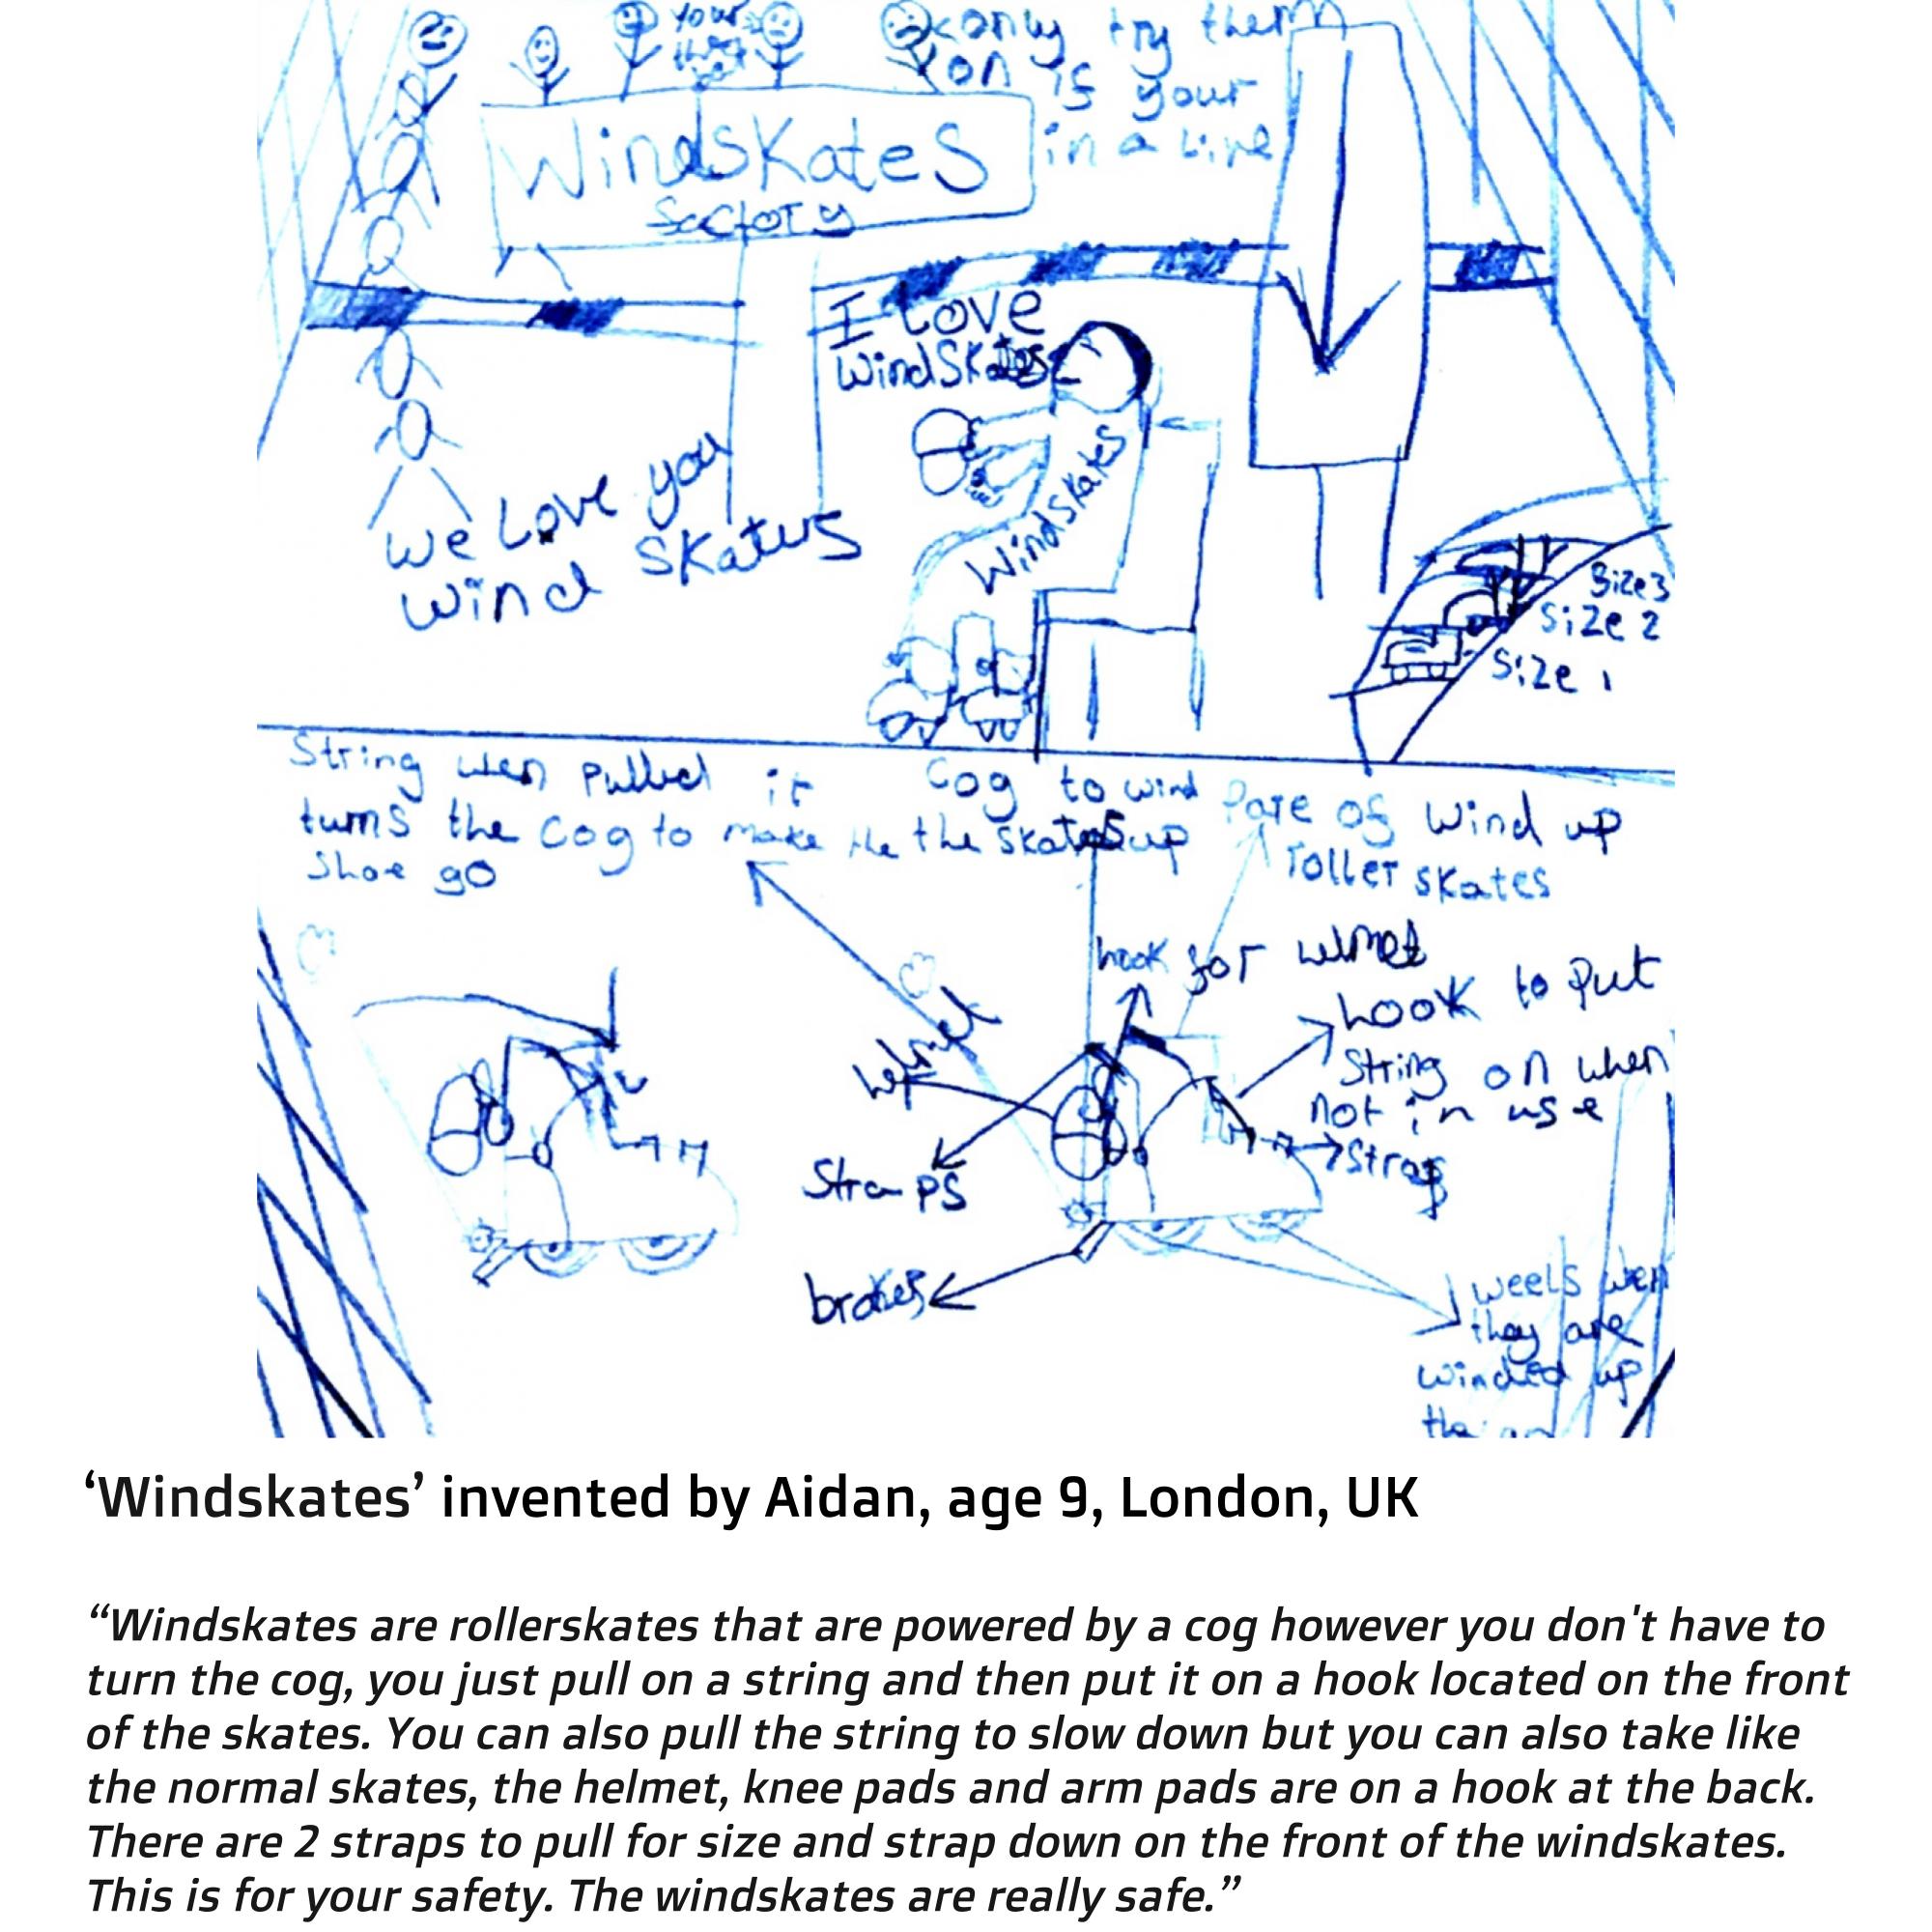 your
only try them
on is your
in a line
WindSkateS
factory
I love
WindSkates
Windskates
we Love you
wind skates
Size3
Size 2
Size 1
String wen Pulled it
turns the Cog to make the
Shoe go
Cog to wind
the skates up
Pare of wind up
roller skates
hook for helmet
hook to Put
String on when
not in use
helmet
Straps
Straps
brakes
weels wen
they are
winded up
‘Windskates’ invented by Aidan, age 9, London, UK
“Windskates are rollerskates that are powered by a cog however you don't have to
turn the cog, you just pull on a string and then put it on a hook located on the front
of the skates. You can also pull the string to slow down but you can also take like
the normal skates, the helmet, knee pads and arm pads are on a hook at the back.
There are 2 straps to pull for size and strap down on the front of the windskates.
This is for your safety. The windskates are really safe.”